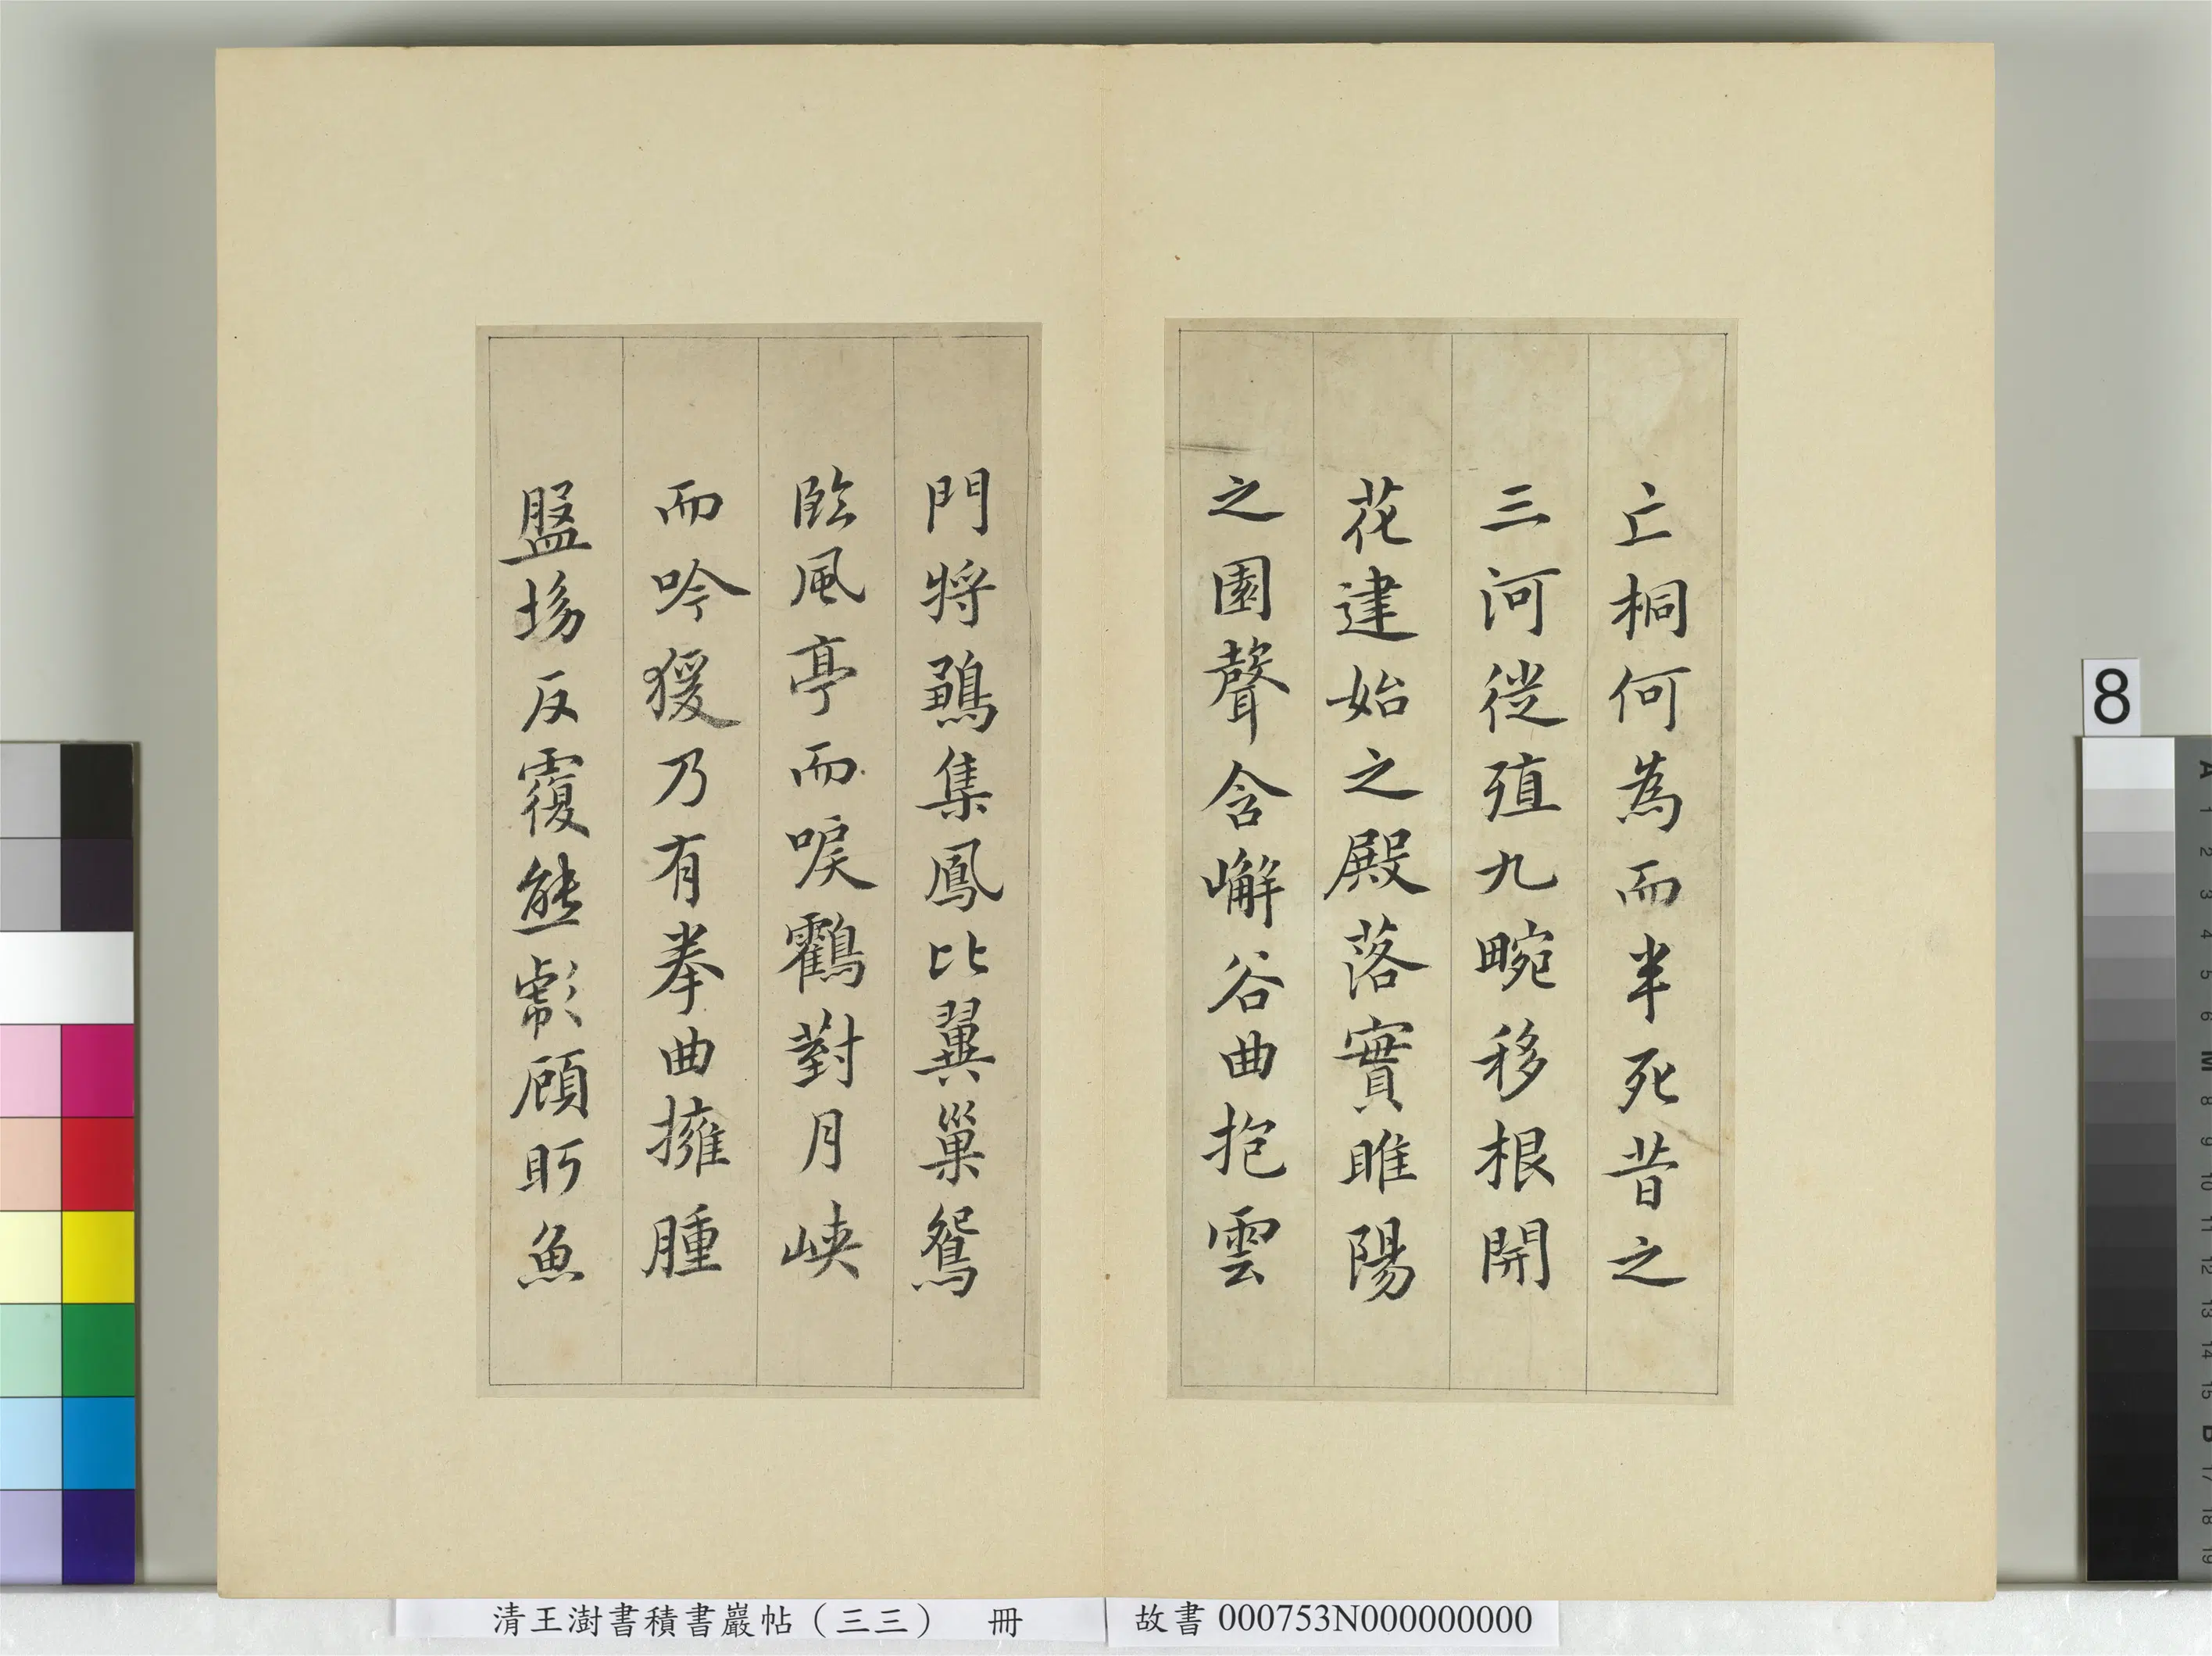 亡桐何為而半死昔之
三河從殖九畹移根開
花建始之殿落實睢陽
之園聲含嶰谷曲抱雲
門將鶵集鳳比翼巢鴛
臨風亭而唳鶴對月峽
而吟猨乃有拳曲擁腫
盤坳反覆熊彪顧盻魚
清王澍書積書巖帖（三三） 冊
故書 000753N000000000
8